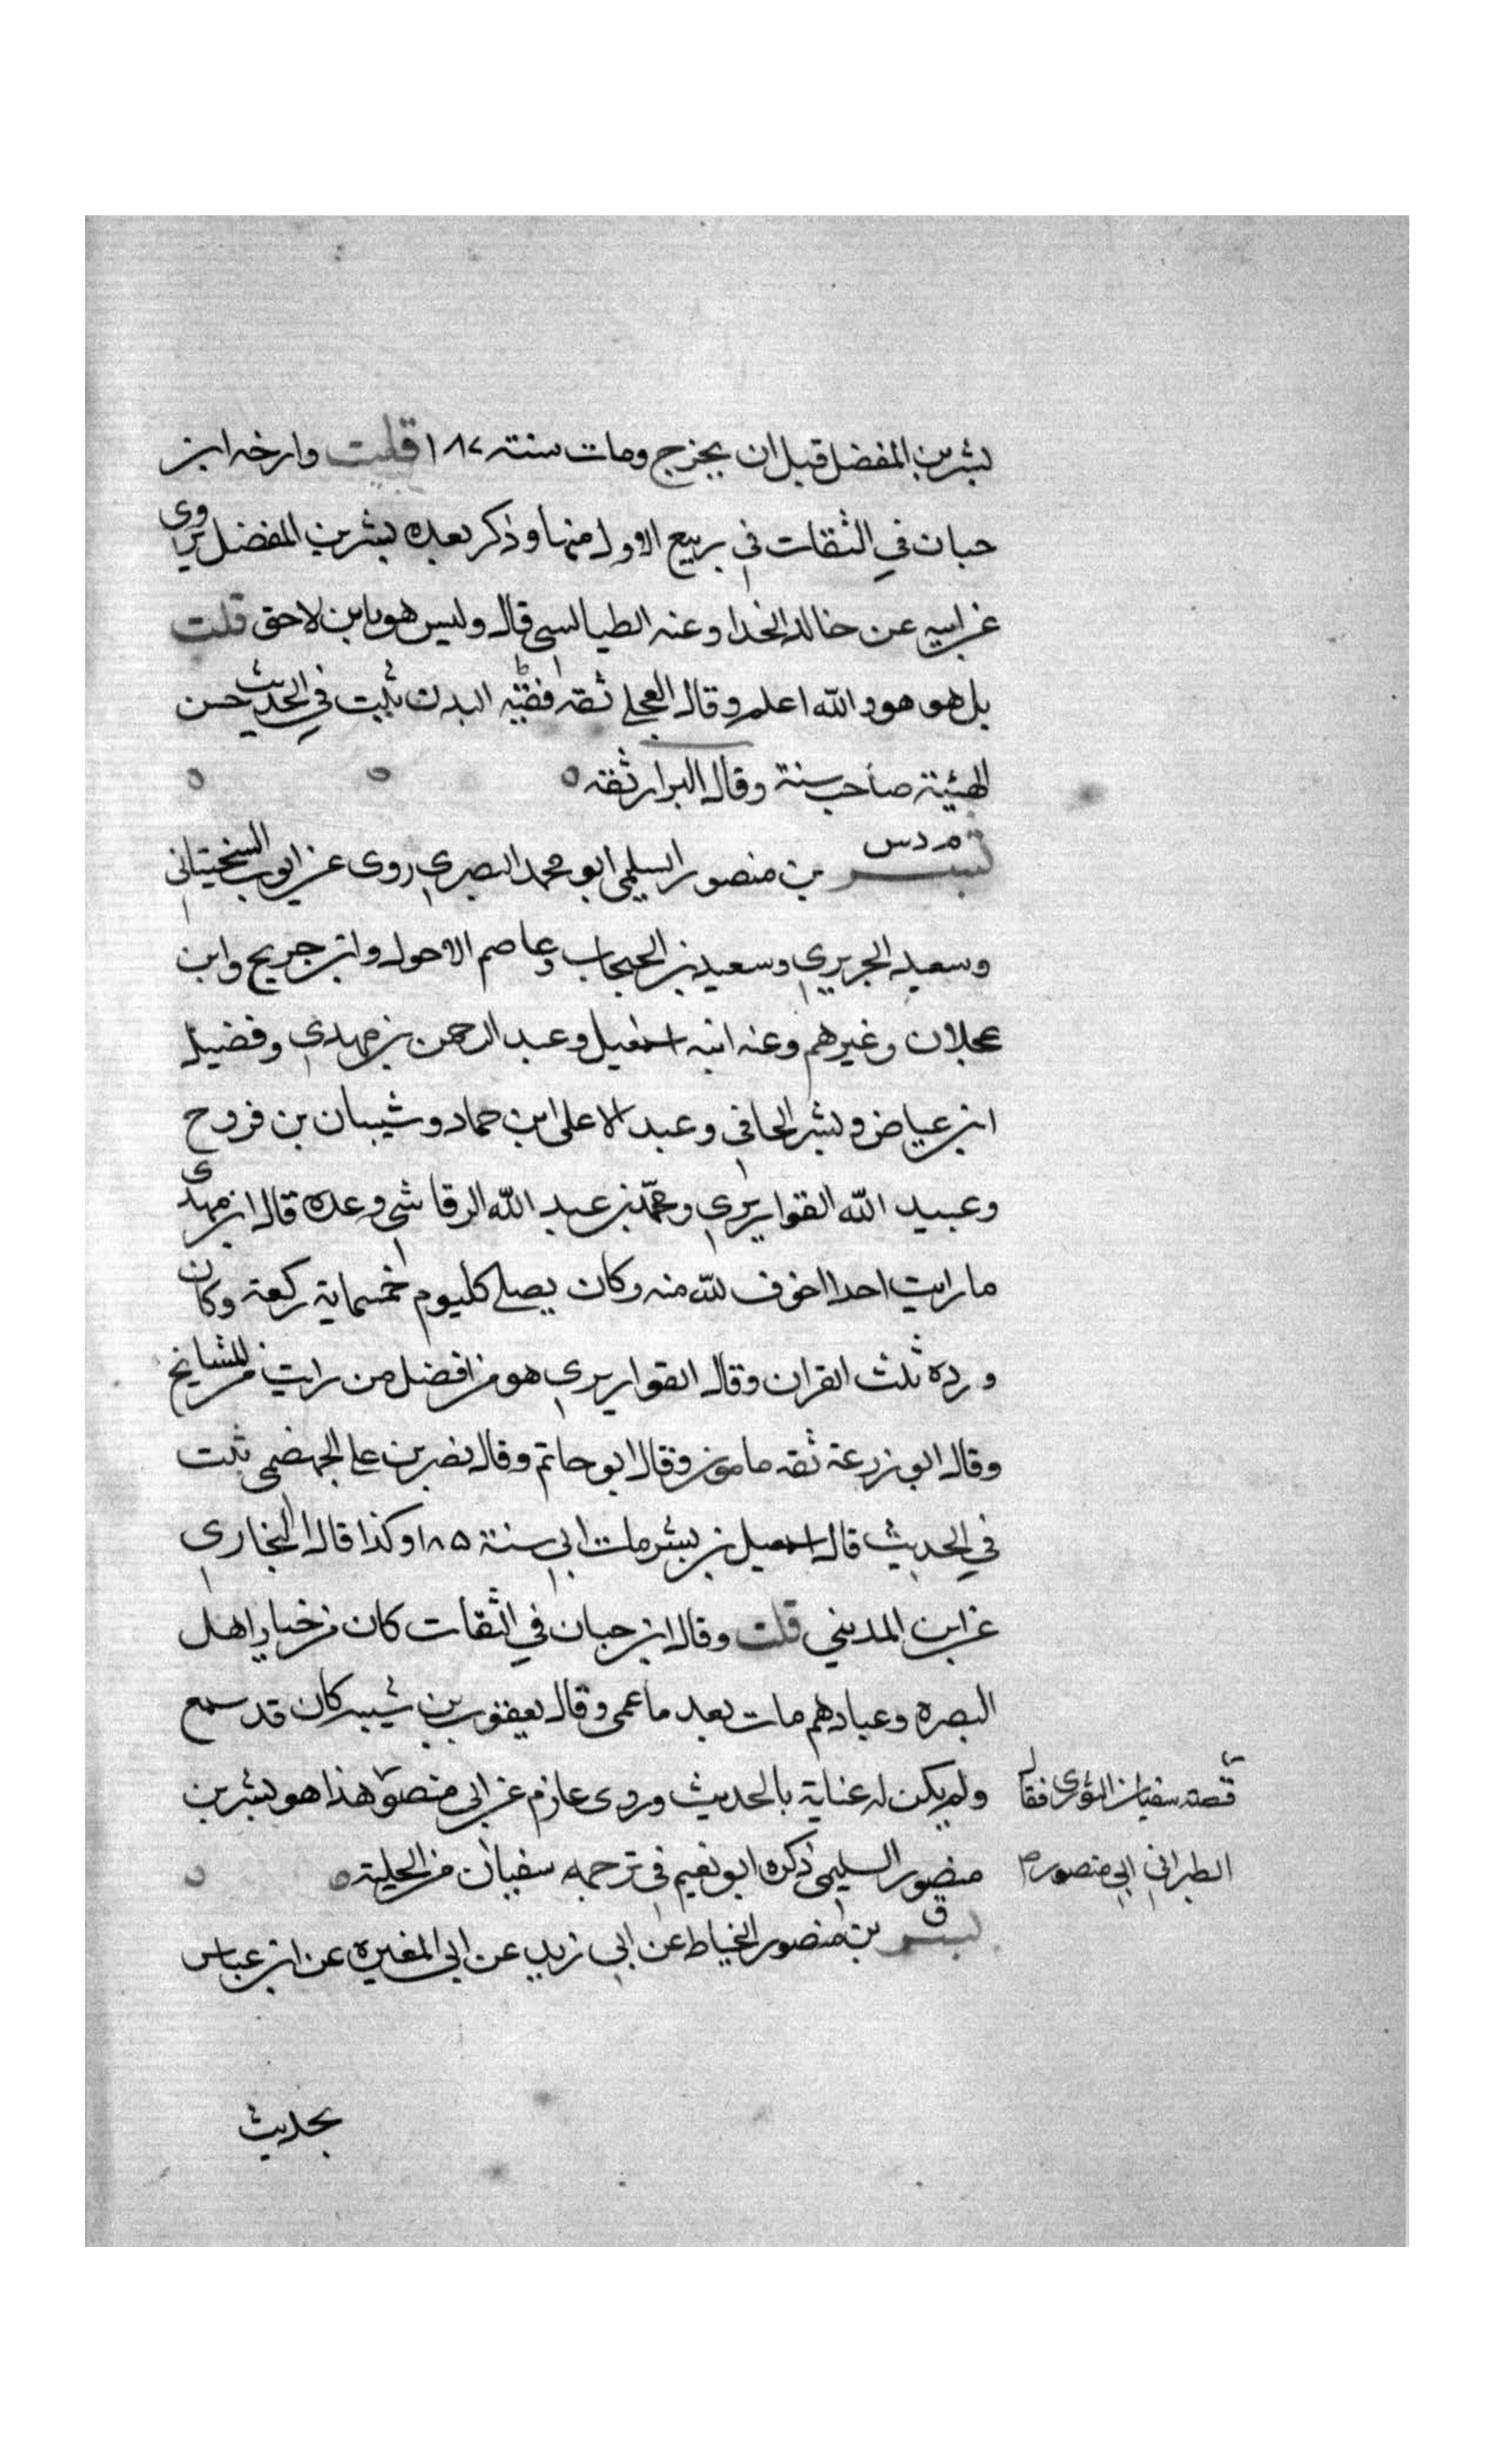 بشر بن المفضل قبل ان يخرج ومات سنة ١٨٧ قلت وارخه ابن
حبان في الثقات في ربيع الاول منها وذكر بعده بشر بن المفضل يروي
عن ابيه عن خالد الحذا وعنه الطيالسي قال وليس هو بابن لاحق قلت
بل هو هو والله اعلم وقال العجلي ثقة فقيه البدن ثبت في الحديث حسن
الهيئة صاحب سنة وقال البزار ثقه
م د س
بشر بن منصور السليمي ابو محمد البصري روى عن ايوب السختياني
وسعيد الجريري وسعيد بن الحبحاب وعاصم الاحول وابن جريج وابن
عجلان وغيرهم وعنه ابنه اسمعيل وعبد الرحمن بن مهدي وفضيل
ابن عياض وبشر الحافي وعبد الاعلى ابن حماد وشيبان بن فروح
وعبيد الله القواريري ومحمد بن عبد الله الرقاشي وعده قال ابن مهدي
ما رايت احدا اخوف لله منه وكان يصلي كل يوم خمسماية ركعة وكان
ورده ثلث القران وقال القواريري هو من افضل من رايت من المشايخ
وقال ابو زرعة ثقه مامون وقال ابو حاتم وقال نصر بن علي الجهضمي ثبت
في الحديث قال اسمعيل بن بشر مات ابي سنة ١٨٥ وكذا قال البخاري
عن ابن المديني قلت وقال ابن حبان في الثقات كان من خيار اهل
البصره وعبادهم مات بعد ما عمى وقال يعقوب بن شيبه كان قد سمع
ولم يكن له عناية بالحديث وروى عارم عن ابي منصور هذا هو بشر بن
منصور السليمي ذكره ابو نعيم في ترجمه سفيان من الحلية
قصة سفيان الثوري فقال
الطبراني ابي منصور م
ق
بشر بن منصور الخياط عن ابي زيد عن ابي المغيره عن ابن عباس
بحديث